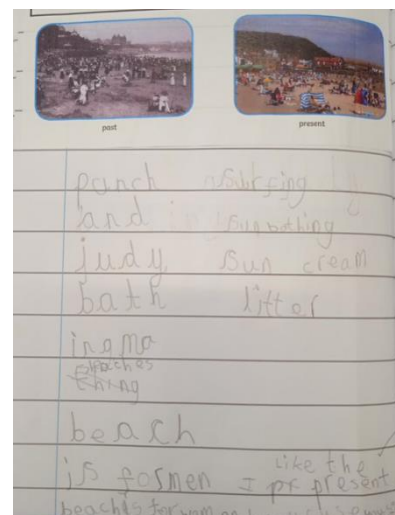 past present
punch surfing
and sun bathing
judy sun cream
bath litter
ing ma
beach
is for men I like the present
beachis for women